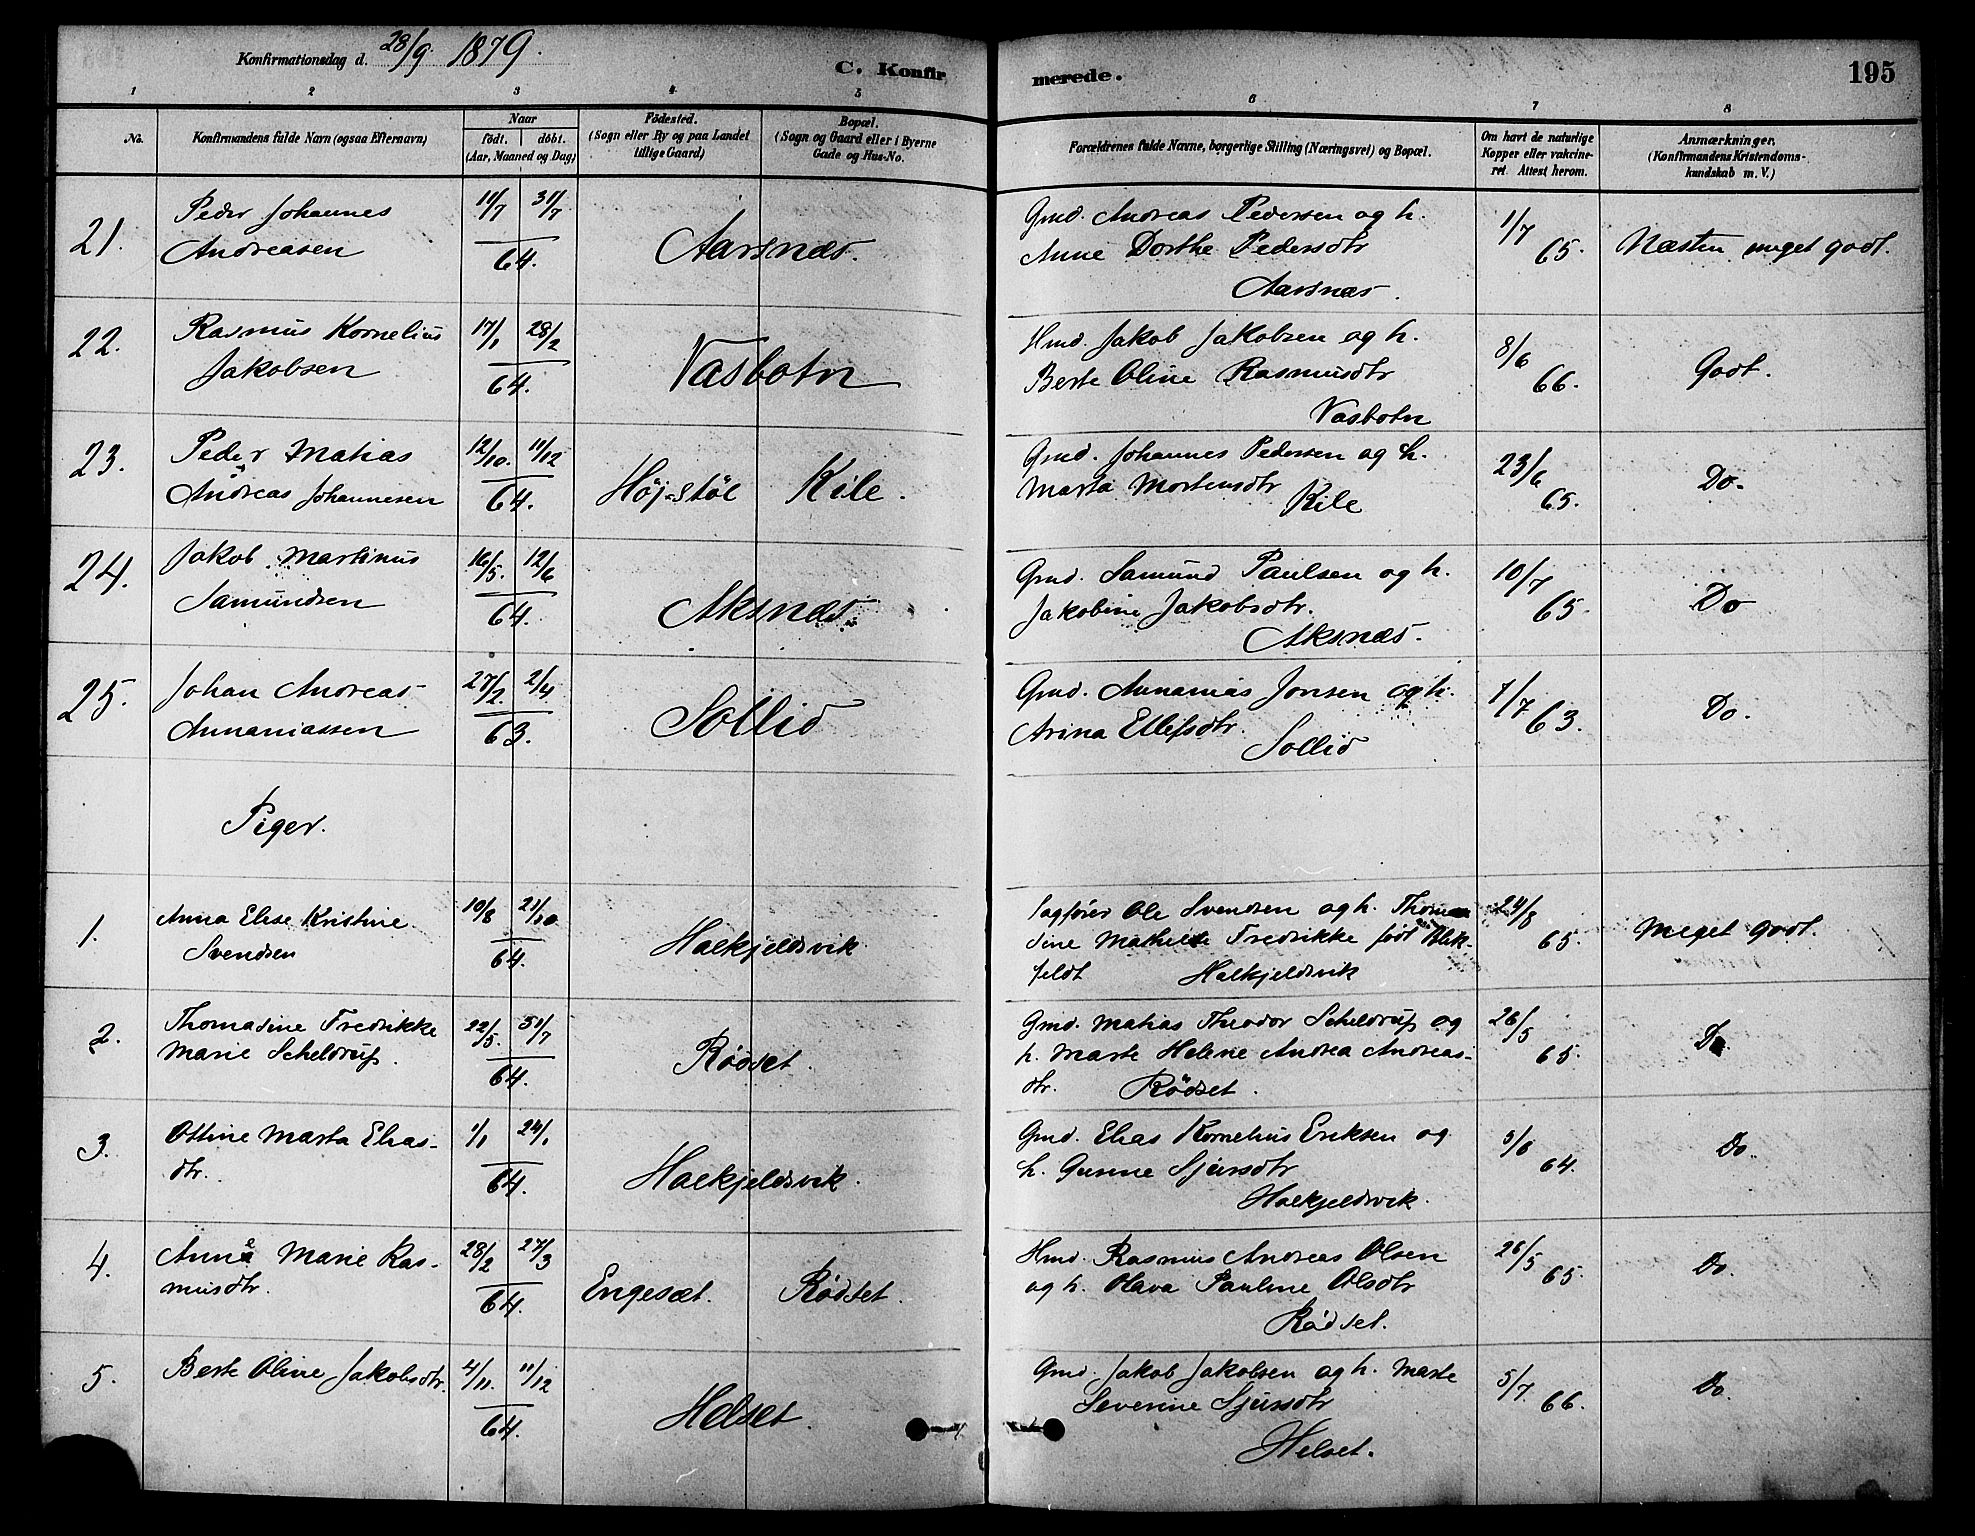 Konfirmationsdag d. 28/9 1879.
C. Konfirmerede.
195
1 2 3 4 5 6 7 8
No.
Konfirmandens fulde Navn (ogsaa Efternavn)
Naar
födt. döbt.
(Aar, Maaned og Dag)
Födested.
(Sogn eller By og paa Landet
tillige Gaard)
Bopæl.
(Sogn og Gaard eller i Byerne
Gade og Hus-No.
Forældrenes fulde Navne, borgerlige Stilling (Næringsvei) og Bopæl.
Om havt de naturlige
Kopper eller vakcine-
ret. Attest herom.
Anmærkninger.
(Konfirmandens Kristendoms-
kundskab m. V.)
21. Peder Johannes
Andreasen
11/7 31/7
64.
Aarsnæs.
Gmd. Andreas Pedersen og h.
Anne Dorthe Pedersdtr
Aarsnæs.
1/7 65.
Næsten meget godt.
22. Rasmus Kornelius
Jakobsen
17/1 28/2
64.
Vasbotn
Hmd. Jakob Jakobsen og h.
Berte Oline Rasmusdtr
Vasbotn
8/6 66.
Godt.
23. Peder Matias
Andreas Johannesen
12/10. 11/12
64.
Höj-stöl Kile.
Gmd. Johannes Pedersen og h.
Marta Mortensdtr
Kile
23/6 65.
Do.
24. Jakob Martinus
Samundsen
16/5. 12/6
64.
Aksnæs
Gmd. Samund Paulsen og h.
Jakobine Jakobsdtr.
Aksnæs.
10/7 65.
Do
25. Johan Andreas
Annaniassen
27/2. 2/4
63.
Sollid
Gmd. Annanias Jonsen og h.
Arina Ellefsdtr.
Sollid
1/7 63.
Do.
Piger.
1. Anna Elise Kristine
Svendsen
10/8 21/10
64.
Halkjeldsvik
Sagförer Ole Svendsen og h. Thoma
sine Mathilde Fredrikke född Blik-
feldt Halkjeldsvik
24/8 65.
Meget godt.
2. Thomasine Fredrikke
Marie Scheldrup.
22/5 31/7
64.
Rödset.
Gmd. Matias Theodor Scheldrup og
h. Marte Helene Andrea Andreas-
dtr. Rödset.
26/5 65.
Do.
3. Ottine Marta Elias-
dtr.
1/1 24/1
64.
Halkjeldsvik.
Gmd. Elias Kornelius Eriksen og
h. Gunne Sjursdtr
Halkjeldsvik.
5/6 64.
Do.
4. Anne Marie Ras-
musdtr.
28/2 27/3
64.
Engesæt. Rödset.
Hmd. Rasmus Andreas Olsen
og h. Olava Pauline Olsdtr
Rödset.
26/5 65.
Do.
5. Berte Oline Jakobsdtr.
4/11. 11/12
64.
Helset.
Gmd. Jakob Jakobsen og h. Marte
Severine Sjursdtr
Helset.
5/7 66.
Do.